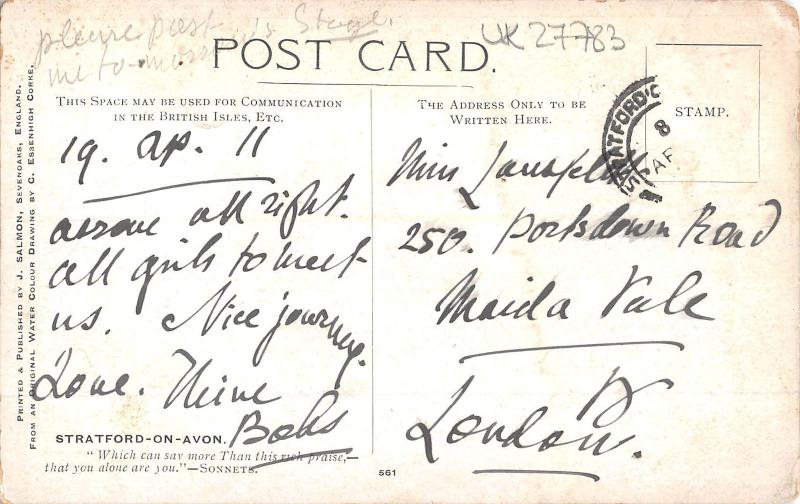 please post
me to
Stage.
UK 27783
POST CARD.
THIS SPACE MAY BE USED FOR COMMUNICATION
IN THE BRITISH ISLES, ETC.
THE ADDRESS ONLY TO BE
WRITTEN HERE.
STAMP.
STRATFORD
8
AP
PRINTED & PUBLISHED BY J. SALMON, SEVENOAKS, ENGLAND.
FROM AN ORIGINAL WATER COLOUR DRAWING BY C. ESSENHIGH CORKE.
19. ap. 11
all right.
all girls to meet
us. Nice journey.
Love. Thine
Babs
Miss
250. Portsdown Road
Maida Vale
W
London.
STRATFORD-ON-AVON.
"Which can say more Than this rich praise,—
that you alone are you."—SONNETS.
561